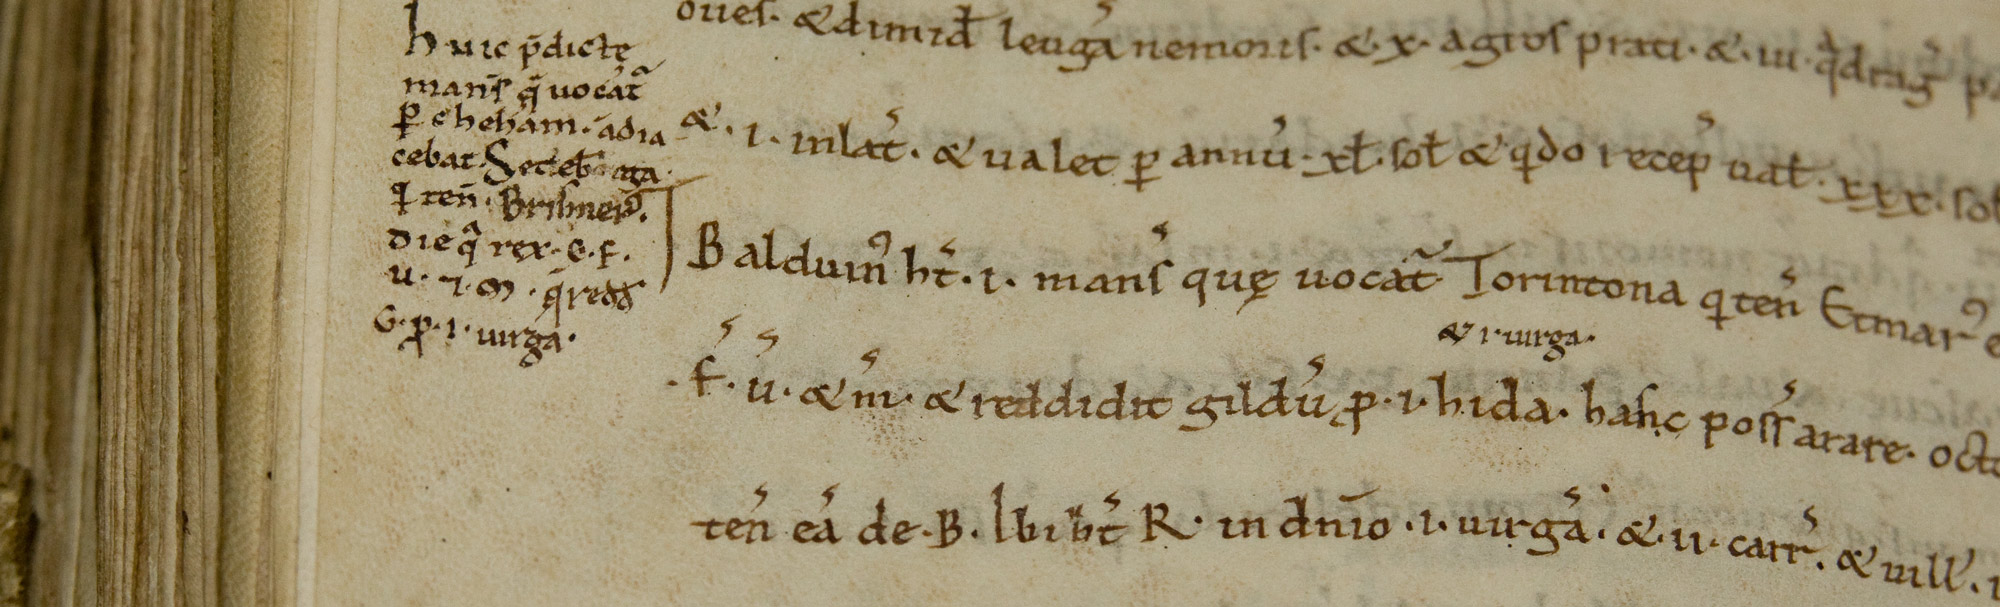 huic p̄dictę
mans̄ q̄ uocat᷑
p̱ chehām. adia
cebat
q ten̄. Brismer᷑.
die q̄ rex. E. F.
u. ⁊. m̄. q̄ redd̄
G. p̱. i. uirga.
oues. & dimid̄ leugā nemoris. & x. agros prati. & . iii. q̄draḡ
&. i. in lat̄. & ualet p̱ annū. xl. sol̄ & qdo recep̄ ual̄. xxx. sol
Balduin᷒ ht̄. i. mans̄ quę uocat᷑ Torintona q ten̄ Etmar᷒
& i uirga.
.f. ū. & m̄. & reddidit gildū p̱. i. hida. hanc poss̄ arare. octo
ten̄ eā de. B. Ibi ht̄ R. in dn̄io. i. uirgā. &. ii. carr̄. & uill̄.